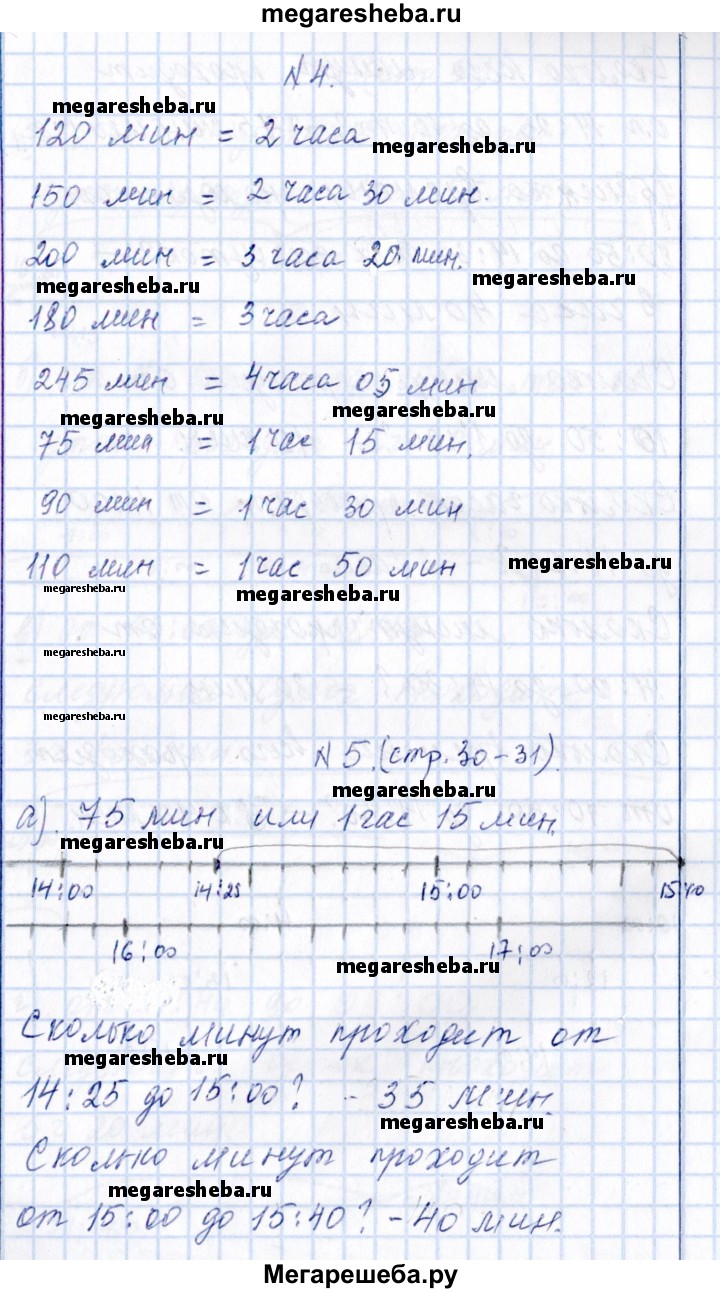 megaresheba.ru
N 4.
megaresheba.ru
120 мин = 2 часа
megaresheba.ru
150 мин = 2 часа 30 мин.
200 мин = 3 часа 20 мин.
megaresheba.ru
180 мин = 3 часа
245 мин = 4 часа 05 мин
megaresheba.ru megaresheba.ru
75 мин = 1 час 15 мин.
90 мин = 1 час 30 мин
110 мин = 1 час 50 мин
megaresheba.ru
megaresheba.ru megaresheba.ru
megaresheba.ru
megaresheba.ru
N 5. (стр. 30-31).
megaresheba.ru
а). 75 мин или 1 час 15 мин.
megaresheba.ru
14:00 14:25 15:00 15:40
16:00 17:00
megaresheba.ru
Сколько минут проходит от
megaresheba.ru
14:25 до 15:00? - 35 мин.
megaresheba.ru
Сколько минут проходит
megaresheba.ru
от 15:00 до 15:40? - 40 мин.
Мегарешеба.ру